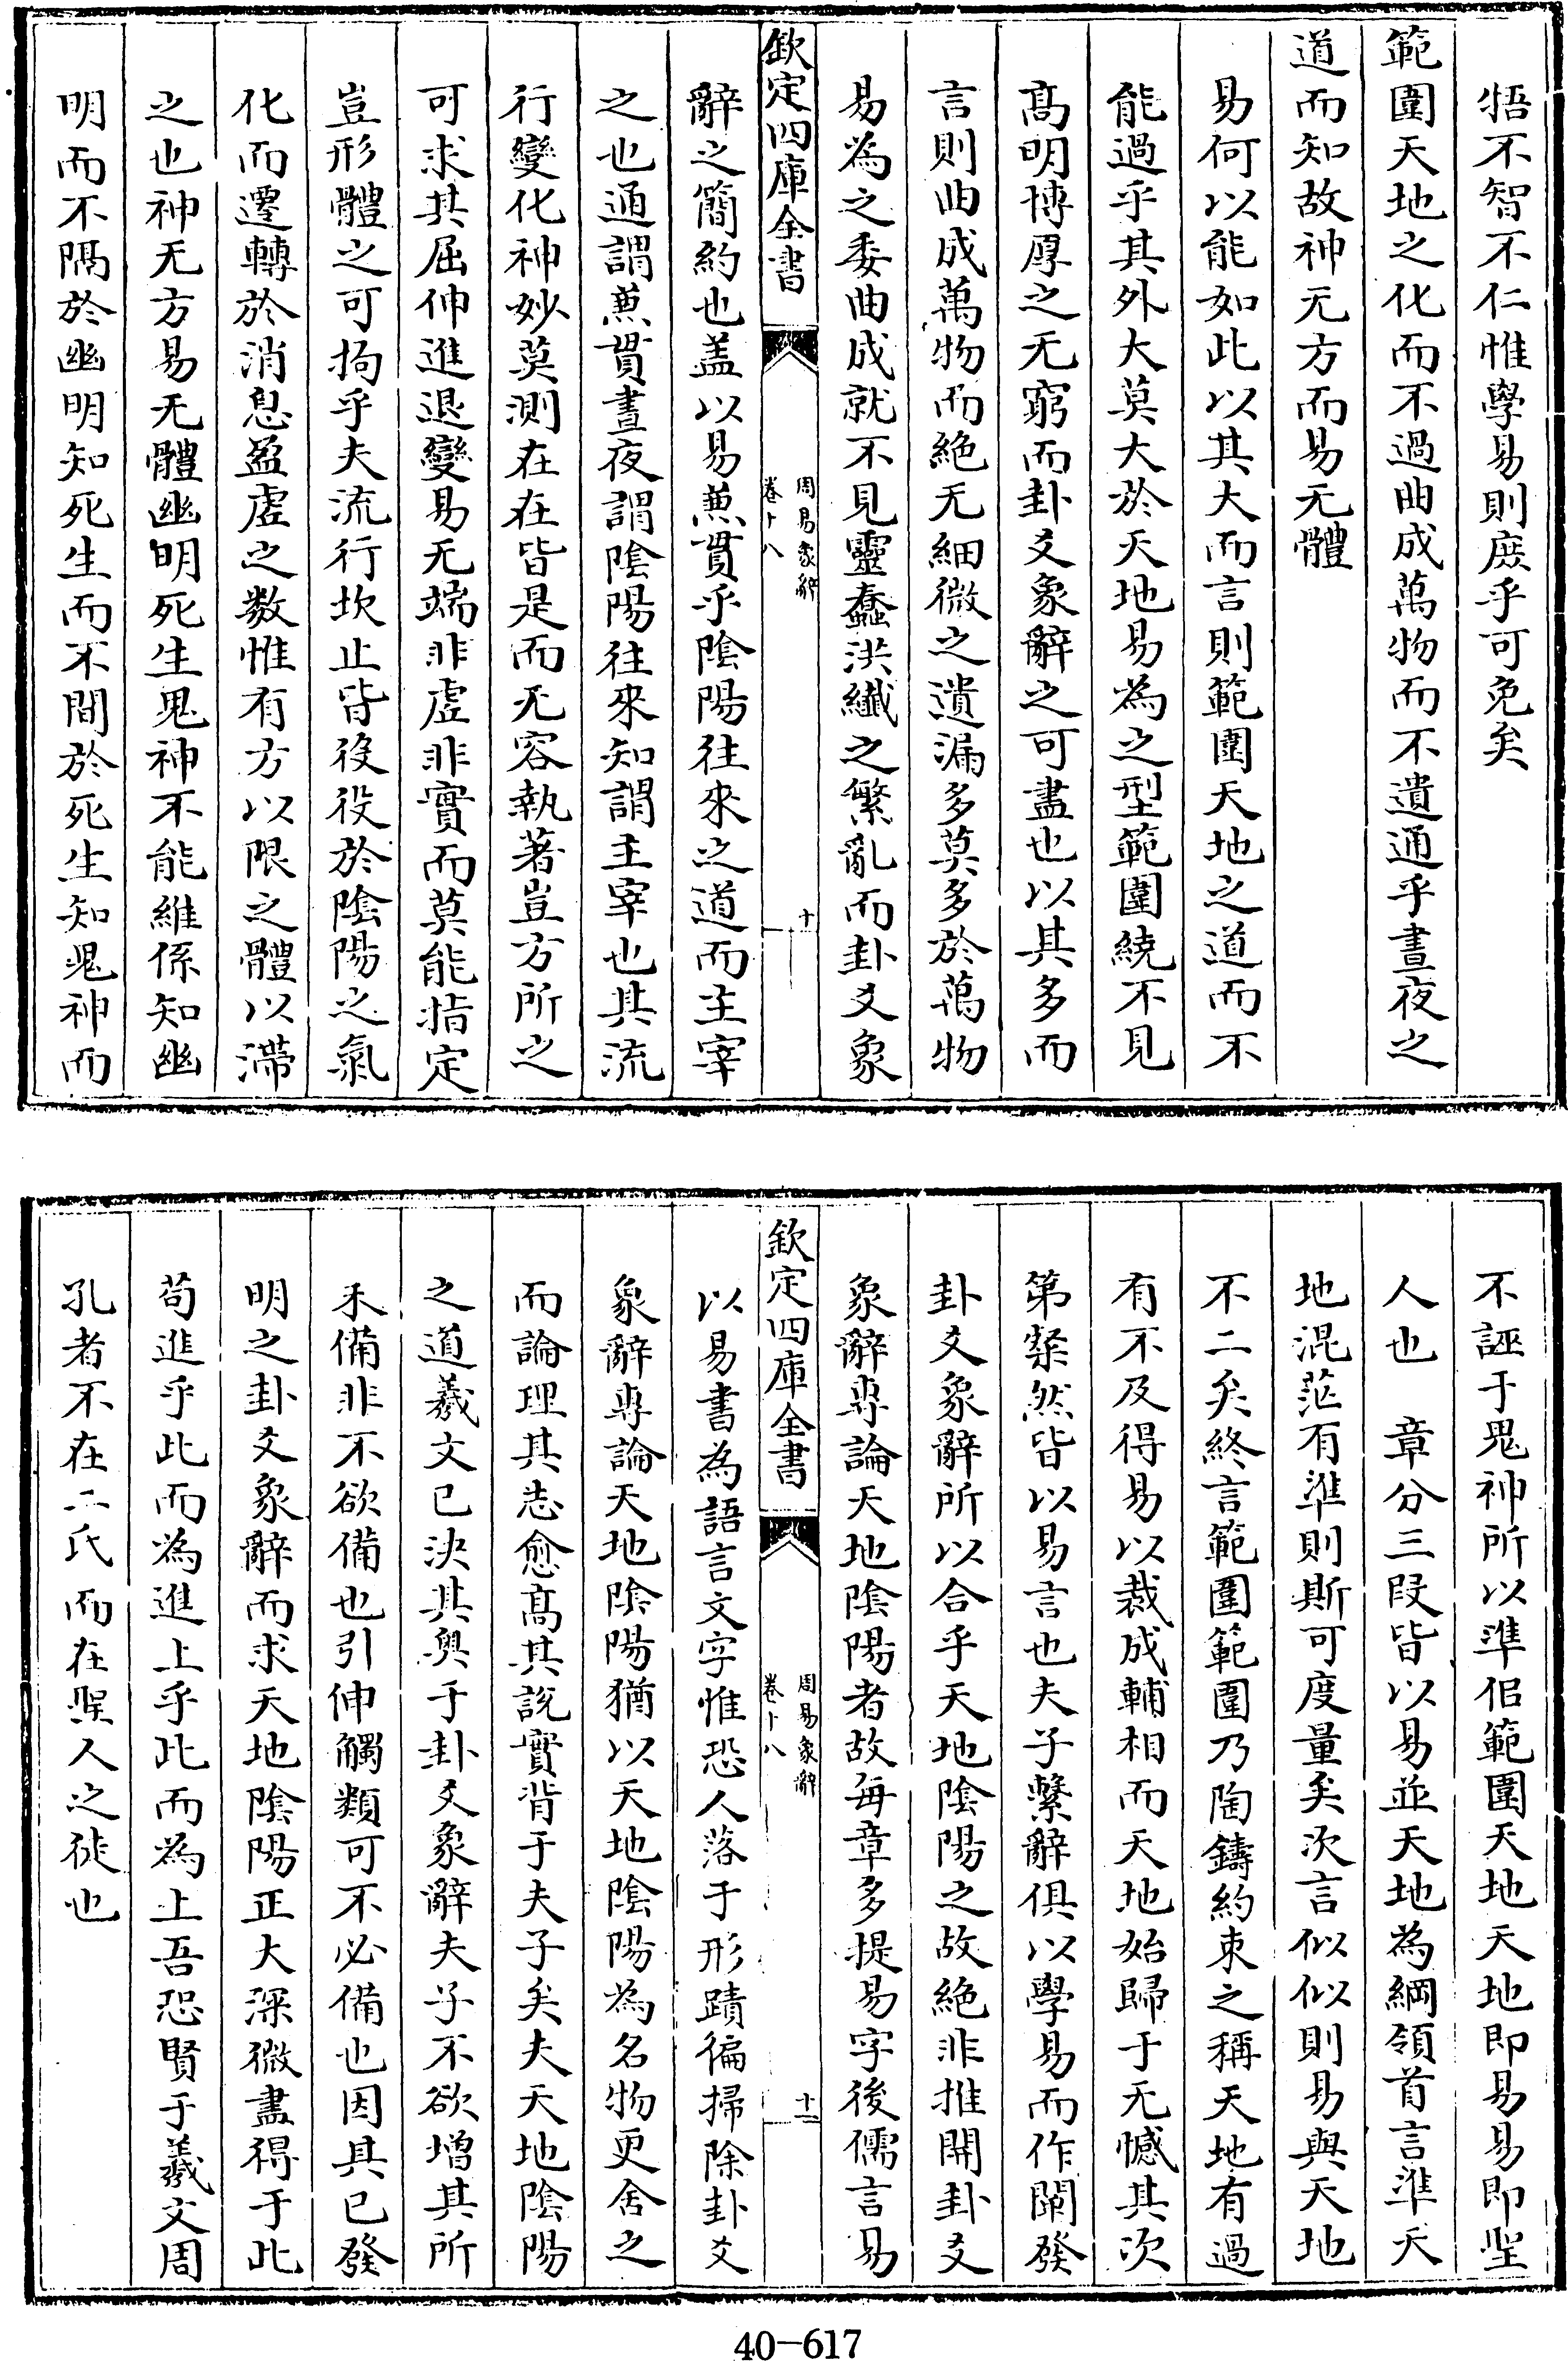 牾不智不仁惟學易則庶乎可免矣
範圍天地之化而不過曲成萬物而不遺通乎晝夜之
道而知故神无方而易无體
易何以能如此以其大而言則範圍天地之道而不
能過乎其外大莫大於天地易為之型範圍繞不見
髙明博厚之无窮而卦爻象辭之可盡也以其多而
言則曲成萬物而絶无細微之遺漏多莫多於萬物
易為之委曲成就不見靈蠢洪纎之繁亂而卦爻象
欽定四庫全書
周易象辭
卷十八
十
辭之簡約也盖以易兼貫乎陰陽往來之道而主宰
之也通謂兼貫晝夜謂陰陽往來知謂主宰也其流
行變化神妙莫測在在皆是而无容執著豈方所之
可求其屈伸進退變易无端非虚非實而莫能指定
豈形體之可拘乎夫流行坎止皆役役於陰陽之氣
化而遷轉於消息盈虚之数惟有方以限之體以滯
之也神无方易无體幽明死生鬼神不能維係知幽
明而不隔於幽明知死生而不間於死生知鬼神而
不誣于鬼神所以準侣範圍天地天地即易易即聖
人也　章分三段皆以易並天地為綱領首言準天
地混茫有準則斯可度量矣次言似似則易與天地
不二矣終言範圍範圍乃陶鑄約束之稱天地有過
有不及得易以裁成輔相而天地始歸于无憾其次
第粲然皆以易言也夫子繫辭俱以學易而作闡發
卦爻象辭所以合乎天地陰陽之故絶非推開卦爻
象辭專論天地陰陽者故每章多提易字後儒言易
欽定四庫全書
周易象辭
卷十八
十一
以易書為語言文字惟恐人落于形蹟徧掃除卦爻
象辭專論天地陰陽猶以天地陰陽為名物更舍之
而論理其志愈髙其說實背于夫子矣夫天地陰陽
之道羲文已决其奥于卦爻象辭夫子不欲增其所
未備非不欲備也引伸觸類可不必備也因其已發
明之卦爻象辭而求天地陰陽正大深微盡得于此
苟進乎此而為進上乎此而為上吾恐賢于羲文周
孔者不在二氏而在聖人之徒也
40-617